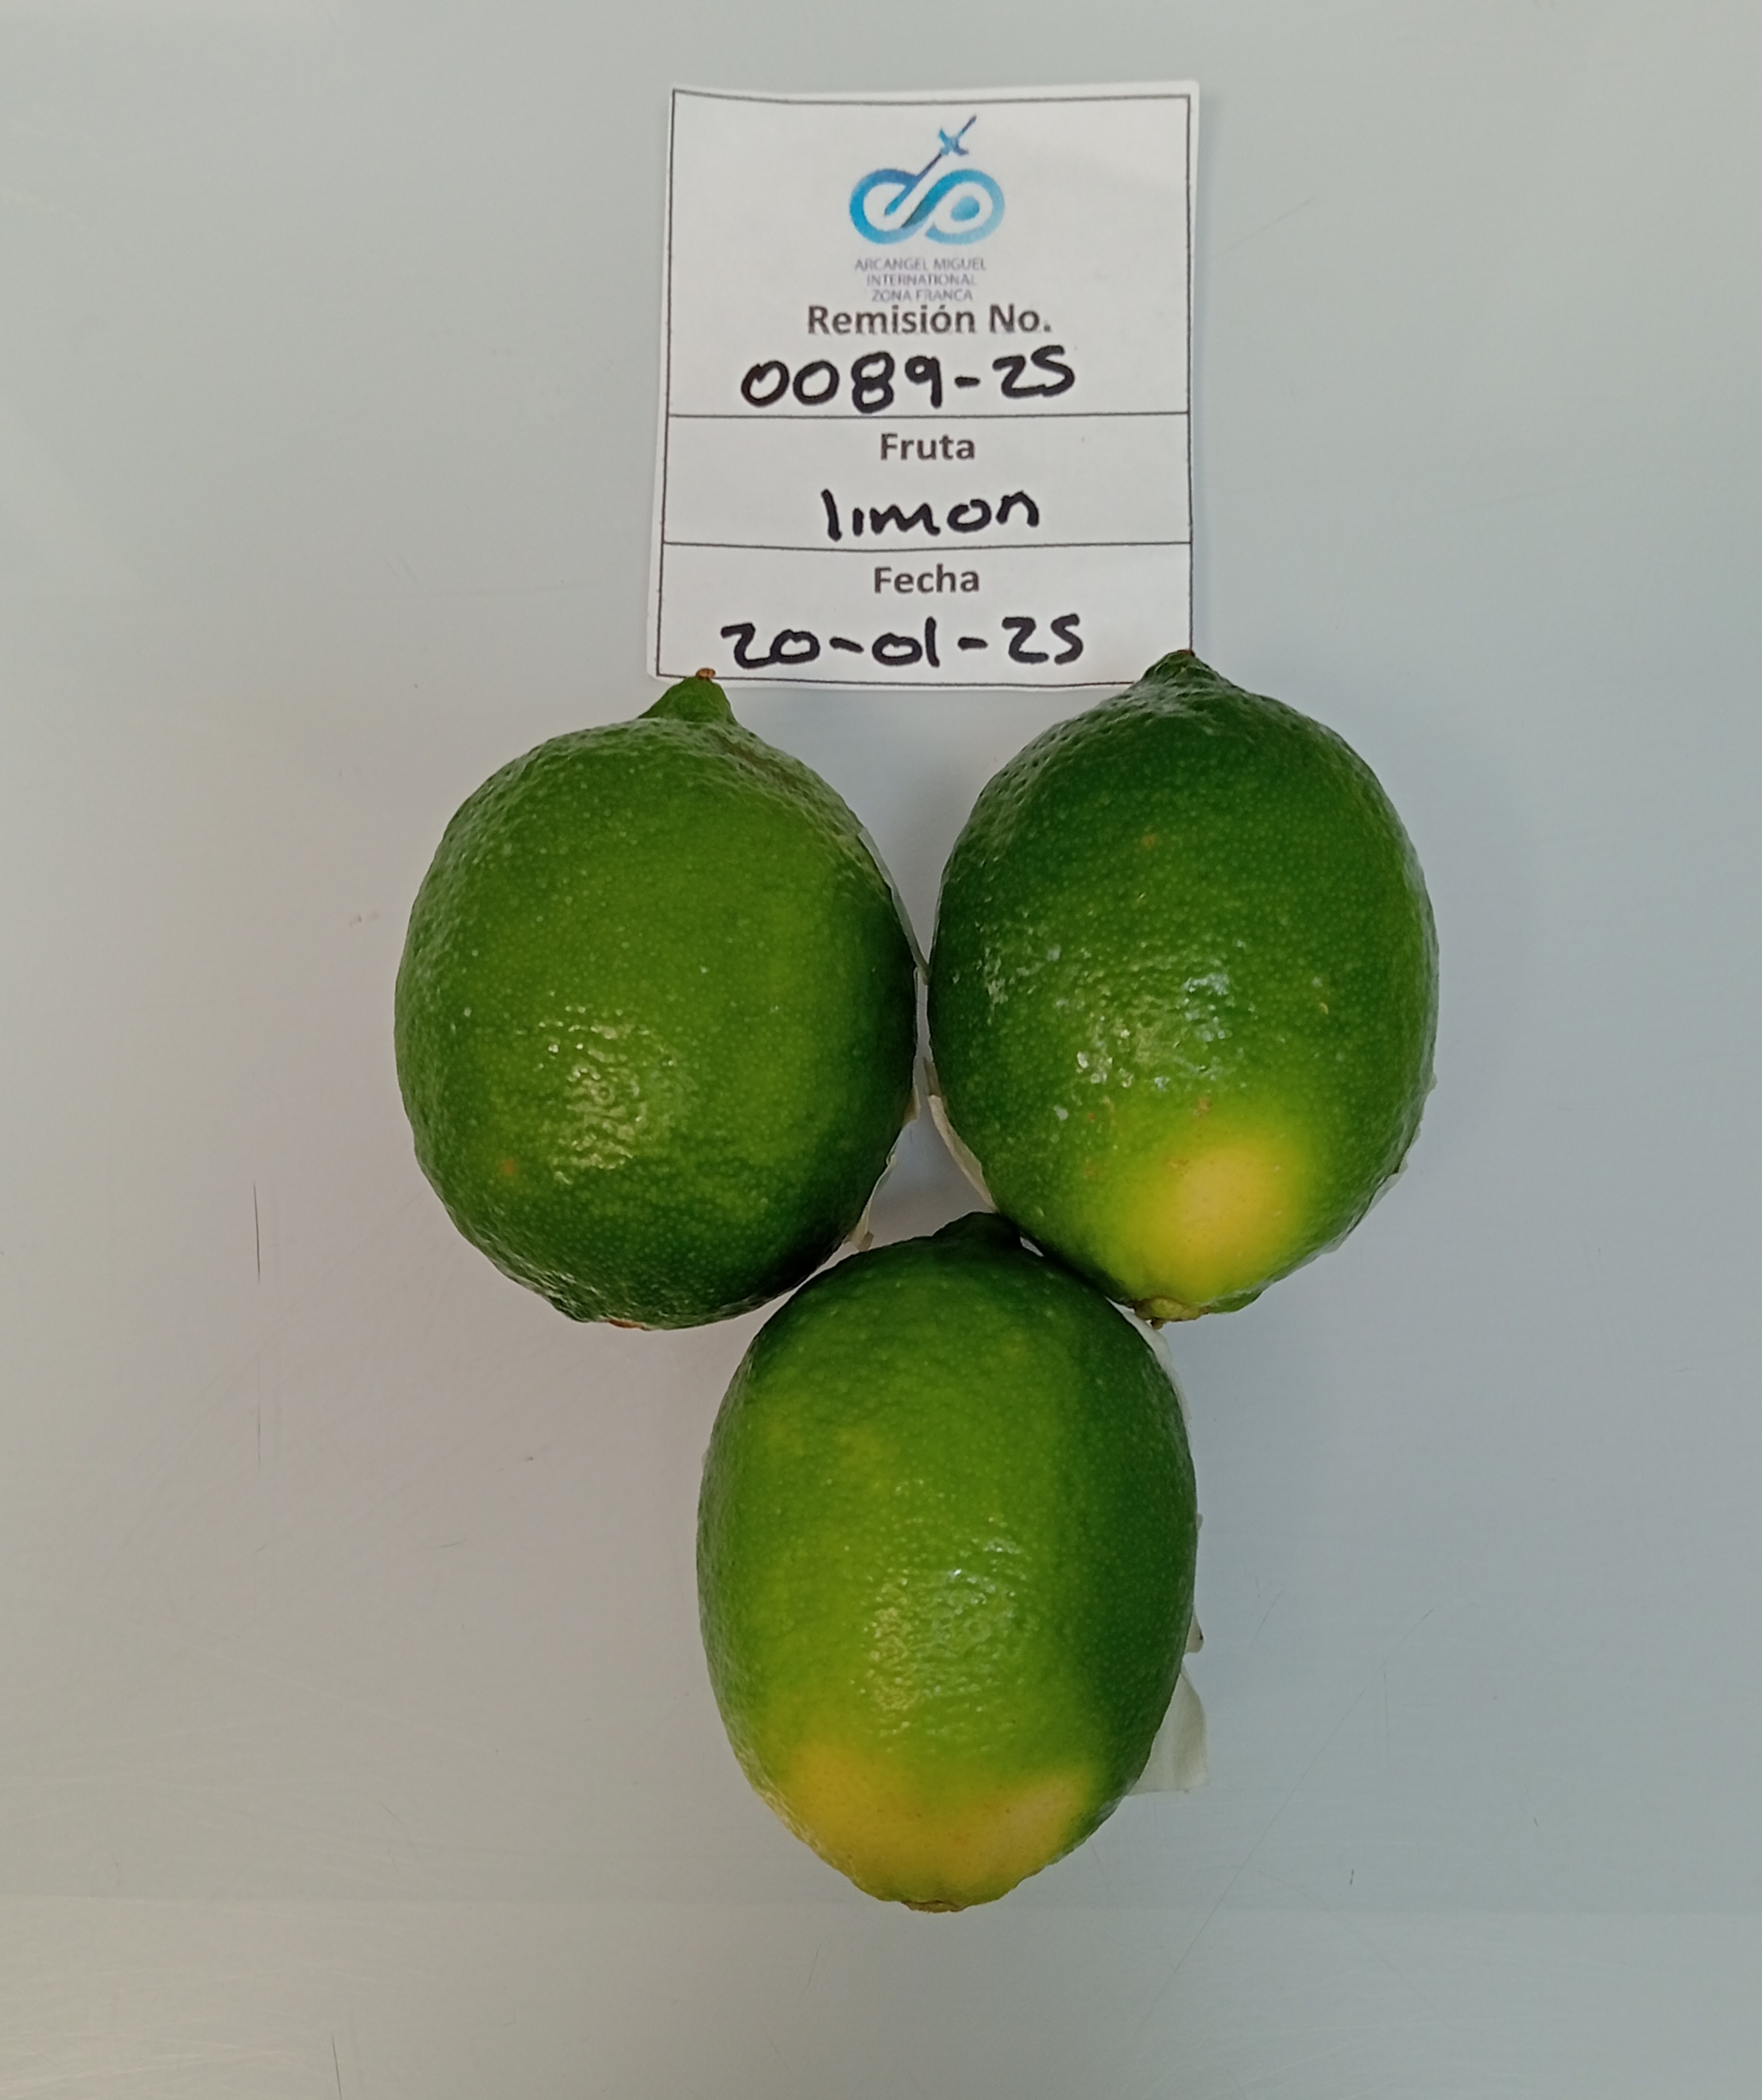 ARCANGEL MIGUEL
INTERNATIONAL
ZONA FRANCA
Remisión No.
0089-25
Fruta
limon
Fecha
20-01-25